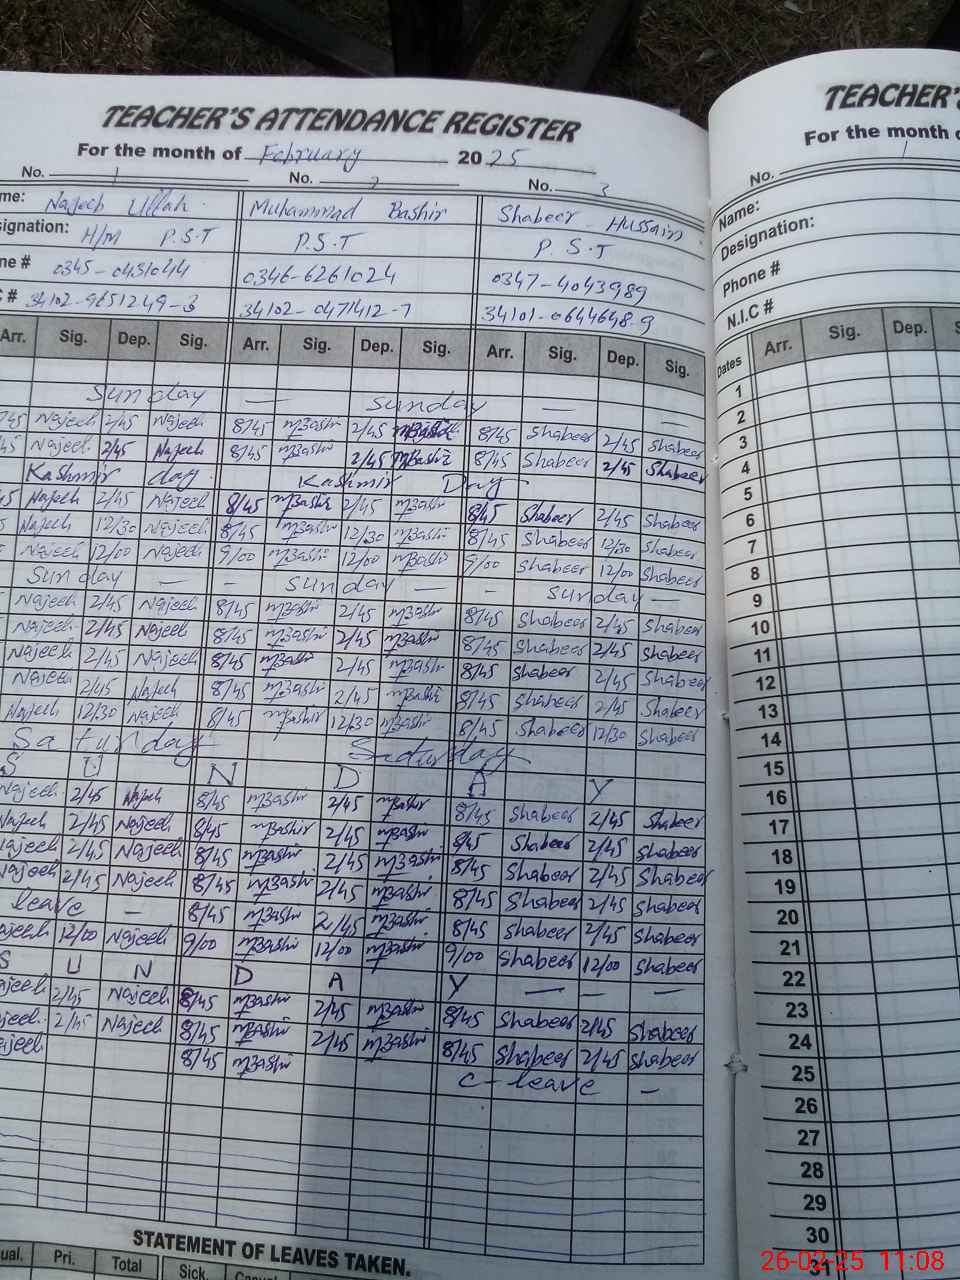 TEACHER'S ATTENDANCE REGISTER
For the month of February 2025
No. 1 No. 2 No. 3
me: Najeeb Ullah Muhammad Bashir Shabeer Hussain
signation: H/M P.S.T P.S.T P.S.T
ne # 0345-0431044 0346-6261024 0347-4043989
C # 34102-9651249-3 34102-0471412-7 34101-0644648-9
Arr. Sig. Dep. Sig. Arr. Sig. Dep. Sig. Arr. Sig. Dep. Sig.
Sunday — Sunday — —
745 Najeeb 2/45 Najeeb 8/45 mBashir 2/45 mBashir 8/45 Shabeer 2/45 Shabeer
45 Najeeb 2/45 Najeeb 8/45 mBashir 2/45 mBashir 8/45 Shabeer 2/45 Shabeer
Kashmir day. Kashmir Day
45 Najeeb 2/45 Najeeb 8/45 mBashir 2/45 mBashir 8/45 Shabeer 2/45 Shabeer
Najeeb 12/30 Najeeb 8/45 mBashir 12/30 mBashir 8/45 Shabeer 12/30 Shabeer
Najeeb 12/00 Najeeb 9/00 mBashir 12/00 mBashir 9/00 Shabeer 12/00 Shabeer
Sunday — - Sunday — - Sunday —
Najeeb 2/45 Najeeb 8/45 mBashir 2/45 mBashir 8/45 Shabeer 2/45 Shabeer
Najeeb 2/45 Najeeb 8/45 mBashir 2/45 mBashir 8/45 Shabeer 2/45 Shabeer
Najeeb 2/45 Najeeb 8/45 mBashir 2/45 mBashir 8/45 Shabeer 2/45 Shabeer
Najeeb 2/45 Najeeb 8/45 mBashir 2/45 mBashir 8/45 Shabeer 2/45 Shabeer
Najeeb 12/30 Najeeb 8/45 mBashir 12/30 mBashir 8/45 Shabeer 12/30 Shabeer
Saturday Saturday
S U N D A Y
Najeeb 2/45 Najeeb 8/45 mBashir 2/45 mBashir 8/45 Shabeer 2/45 Shabeer
Najeeb 2/45 Najeeb 8/45 mBashir 2/45 mBashir 8/45 Shabeer 2/45 Shabeer
Najeeb 2/45 Najeeb 8/45 mBashir 2/45 mBashir 8/45 Shabeer 2/45 Shabeer
Najeeb 2/45 Najeeb 8/45 mBashir 2/45 mBashir 8/45 Shabeer 2/45 Shabeer
leave — 8/45 mBashir 2/45 mBashir 8/45 Shabeer 2/45 Shabeer
ajeeb 12/00 Najeeb 9/00 mBashir 12/00 mBashir 9/00 Shabeer 12/00 Shabeer
S U N D A Y — — —
ajeeb 2/45 Najeeb 8/45 mBashir 2/45 mBashir 8/45 Shabeer 2/45 Shabeer
ajeeb 2/45 Najeeb 8/45 mBashir 2/45 mBashir 8/45 Shabeer 2/45 Shabeer
ajeeb 8/45 mBashir C-leave —
STATEMENT OF LEAVES TAKEN.
ual. Pri. Total Sick. Casual
TEACHER'S
For the month o
No. 1
Name:
Designation:
Phone #
N.I.C #
Dates Arr. Sig. Dep.
1
2
3
4
5
6
7
8
9
10
11
12
13
14
15
16
17
18
19
20
21
22
23
24
25
26
27
28
29
30
31
26-02-25 11:08